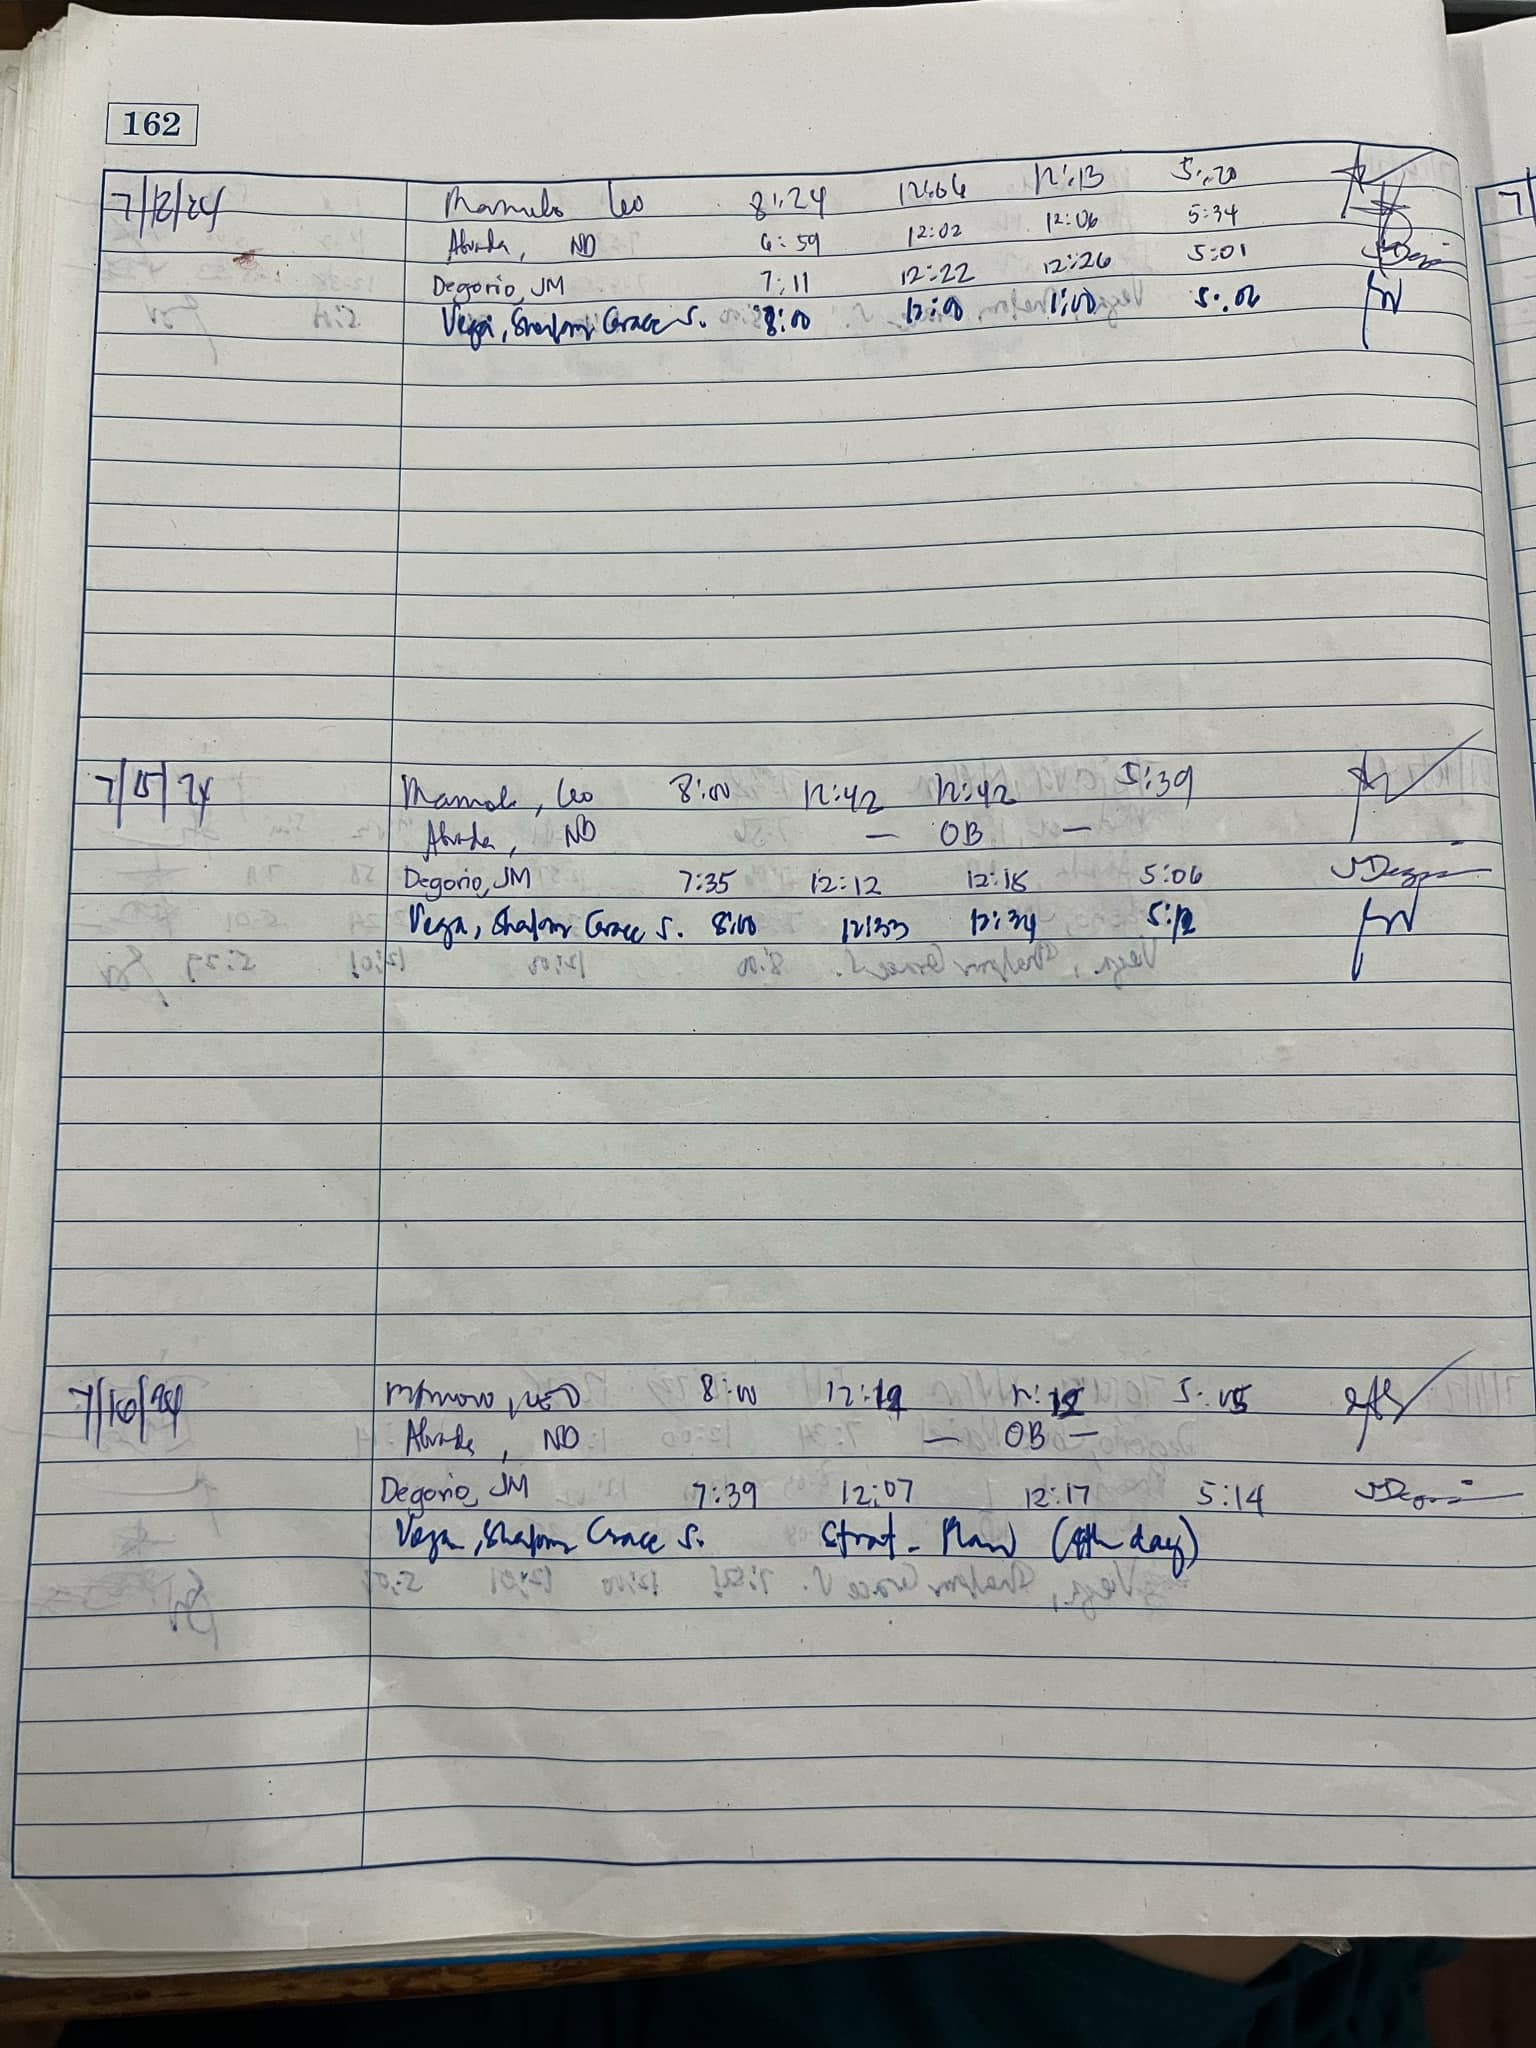 162
7/12/24 Leo 8:24 12:06 12:13 5:20
Abrada, ND 6:59 12:02 12:06 5:34
Degorio, JM 7:11 12:22 12:26 5:01
Vega, Grace S. 8:00 12:00 1:00 5:06
7/15/24 Leo 8:00 12:42 12:42 5:39
Abrada, ND — OB —
Degorio, JM 7:35 12:12 12:18 5:06
Vega, Grace S. 8:00 12:33 12:34 5:12
7/16/24 8:00 5:05
Abrada, ND — OB —
Degorio, JM 7:39 12:07 12:17 5:14
Vega, Grace S. Strat. Plan (4th day)